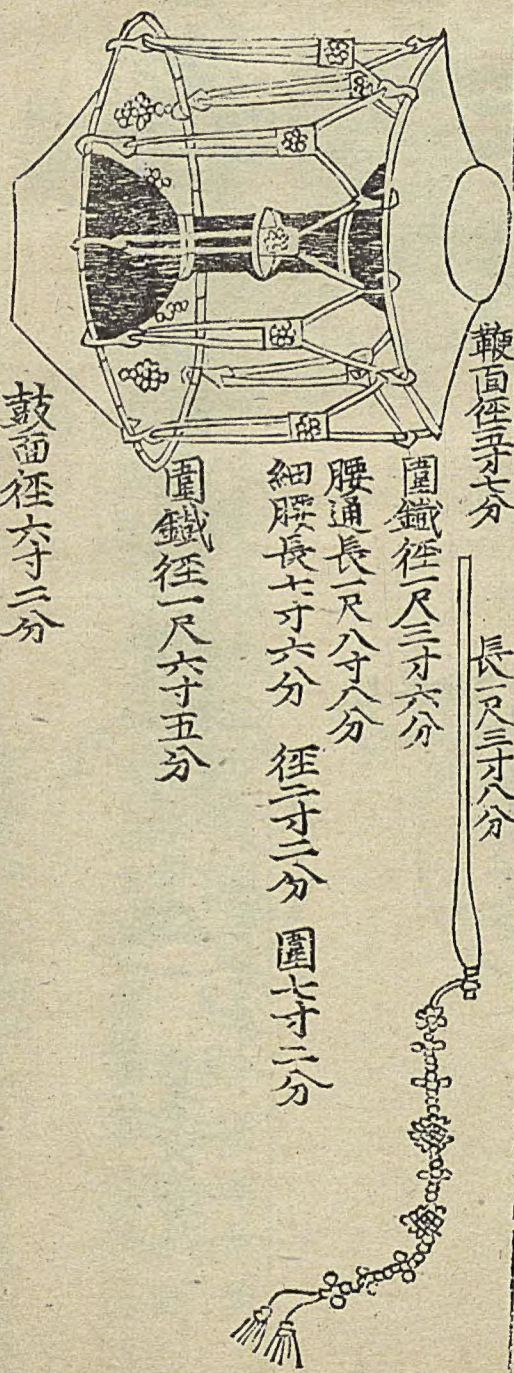 鞭面徑五寸七分　長一尺三寸八分
圍鐵徑一尺三寸六分
腰通長一尺八寸八分
細腰長七寸六分　徑二寸二分　圍七寸二分
圍鐵徑一尺六寸五分
鼓面徑六寸二分